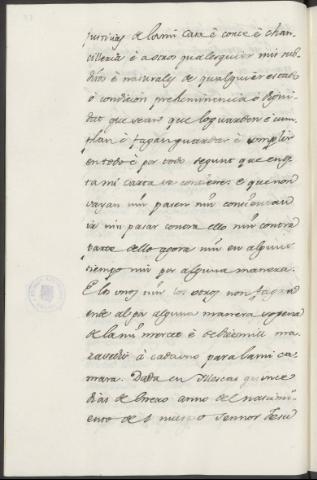 justicias de la mi Casa è corte è chan-
cilleria è a otros qualesquier mis sub-
ditos è naturales de qualquier estado
ò condicion preheminencia ò digni-
dat que sean que lo guarden è cum-
plan è fagan guardar è complir
en todo è por todo segunt que en es-
ta mi carta se contiene: è que non
vayan nin pasen nin consientan
ir nin pasar contra ello nin contra
parte dello agora nin en algunt
tiempo nin por alguna manera.
E los unos nin los otros non fagad
ende al por alguna manera sopena
de la mi merced è de diezmill ma-
ravedis à cadauno para la mi ca-
mara. Dada en Illescas quince
dias de Enero anno del nascimi-
ento de nuestro Sennor Jesu